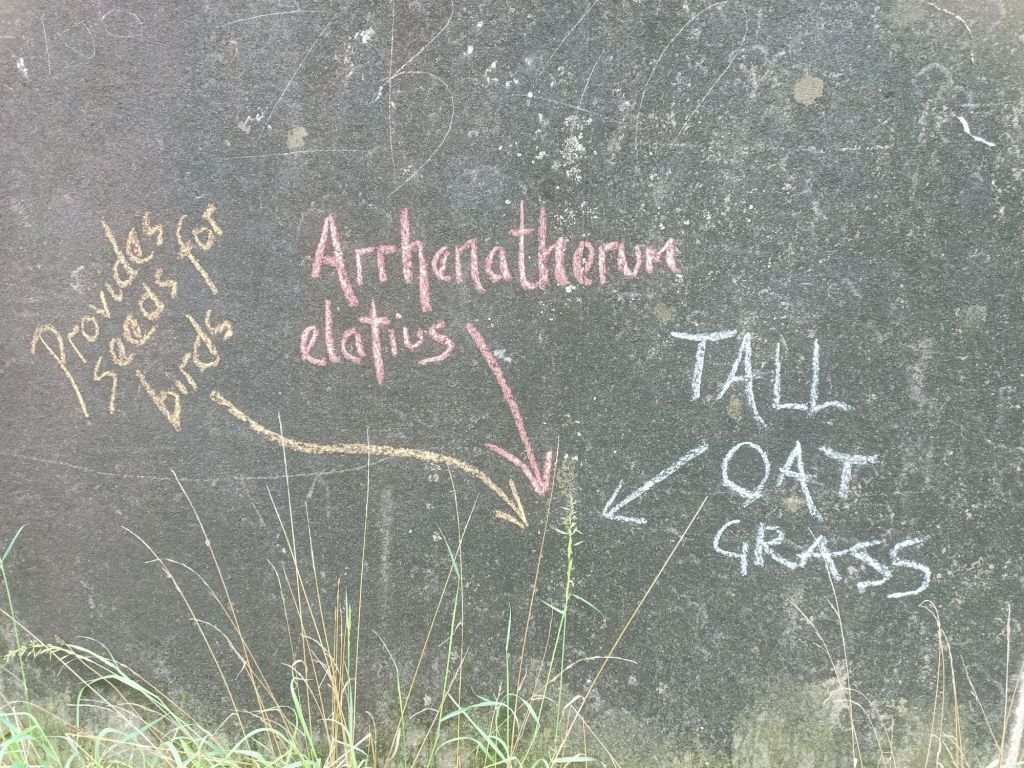 Provides
seeds for
birds
Arrhenatherum
elatius
TALL
OAT
GRASS